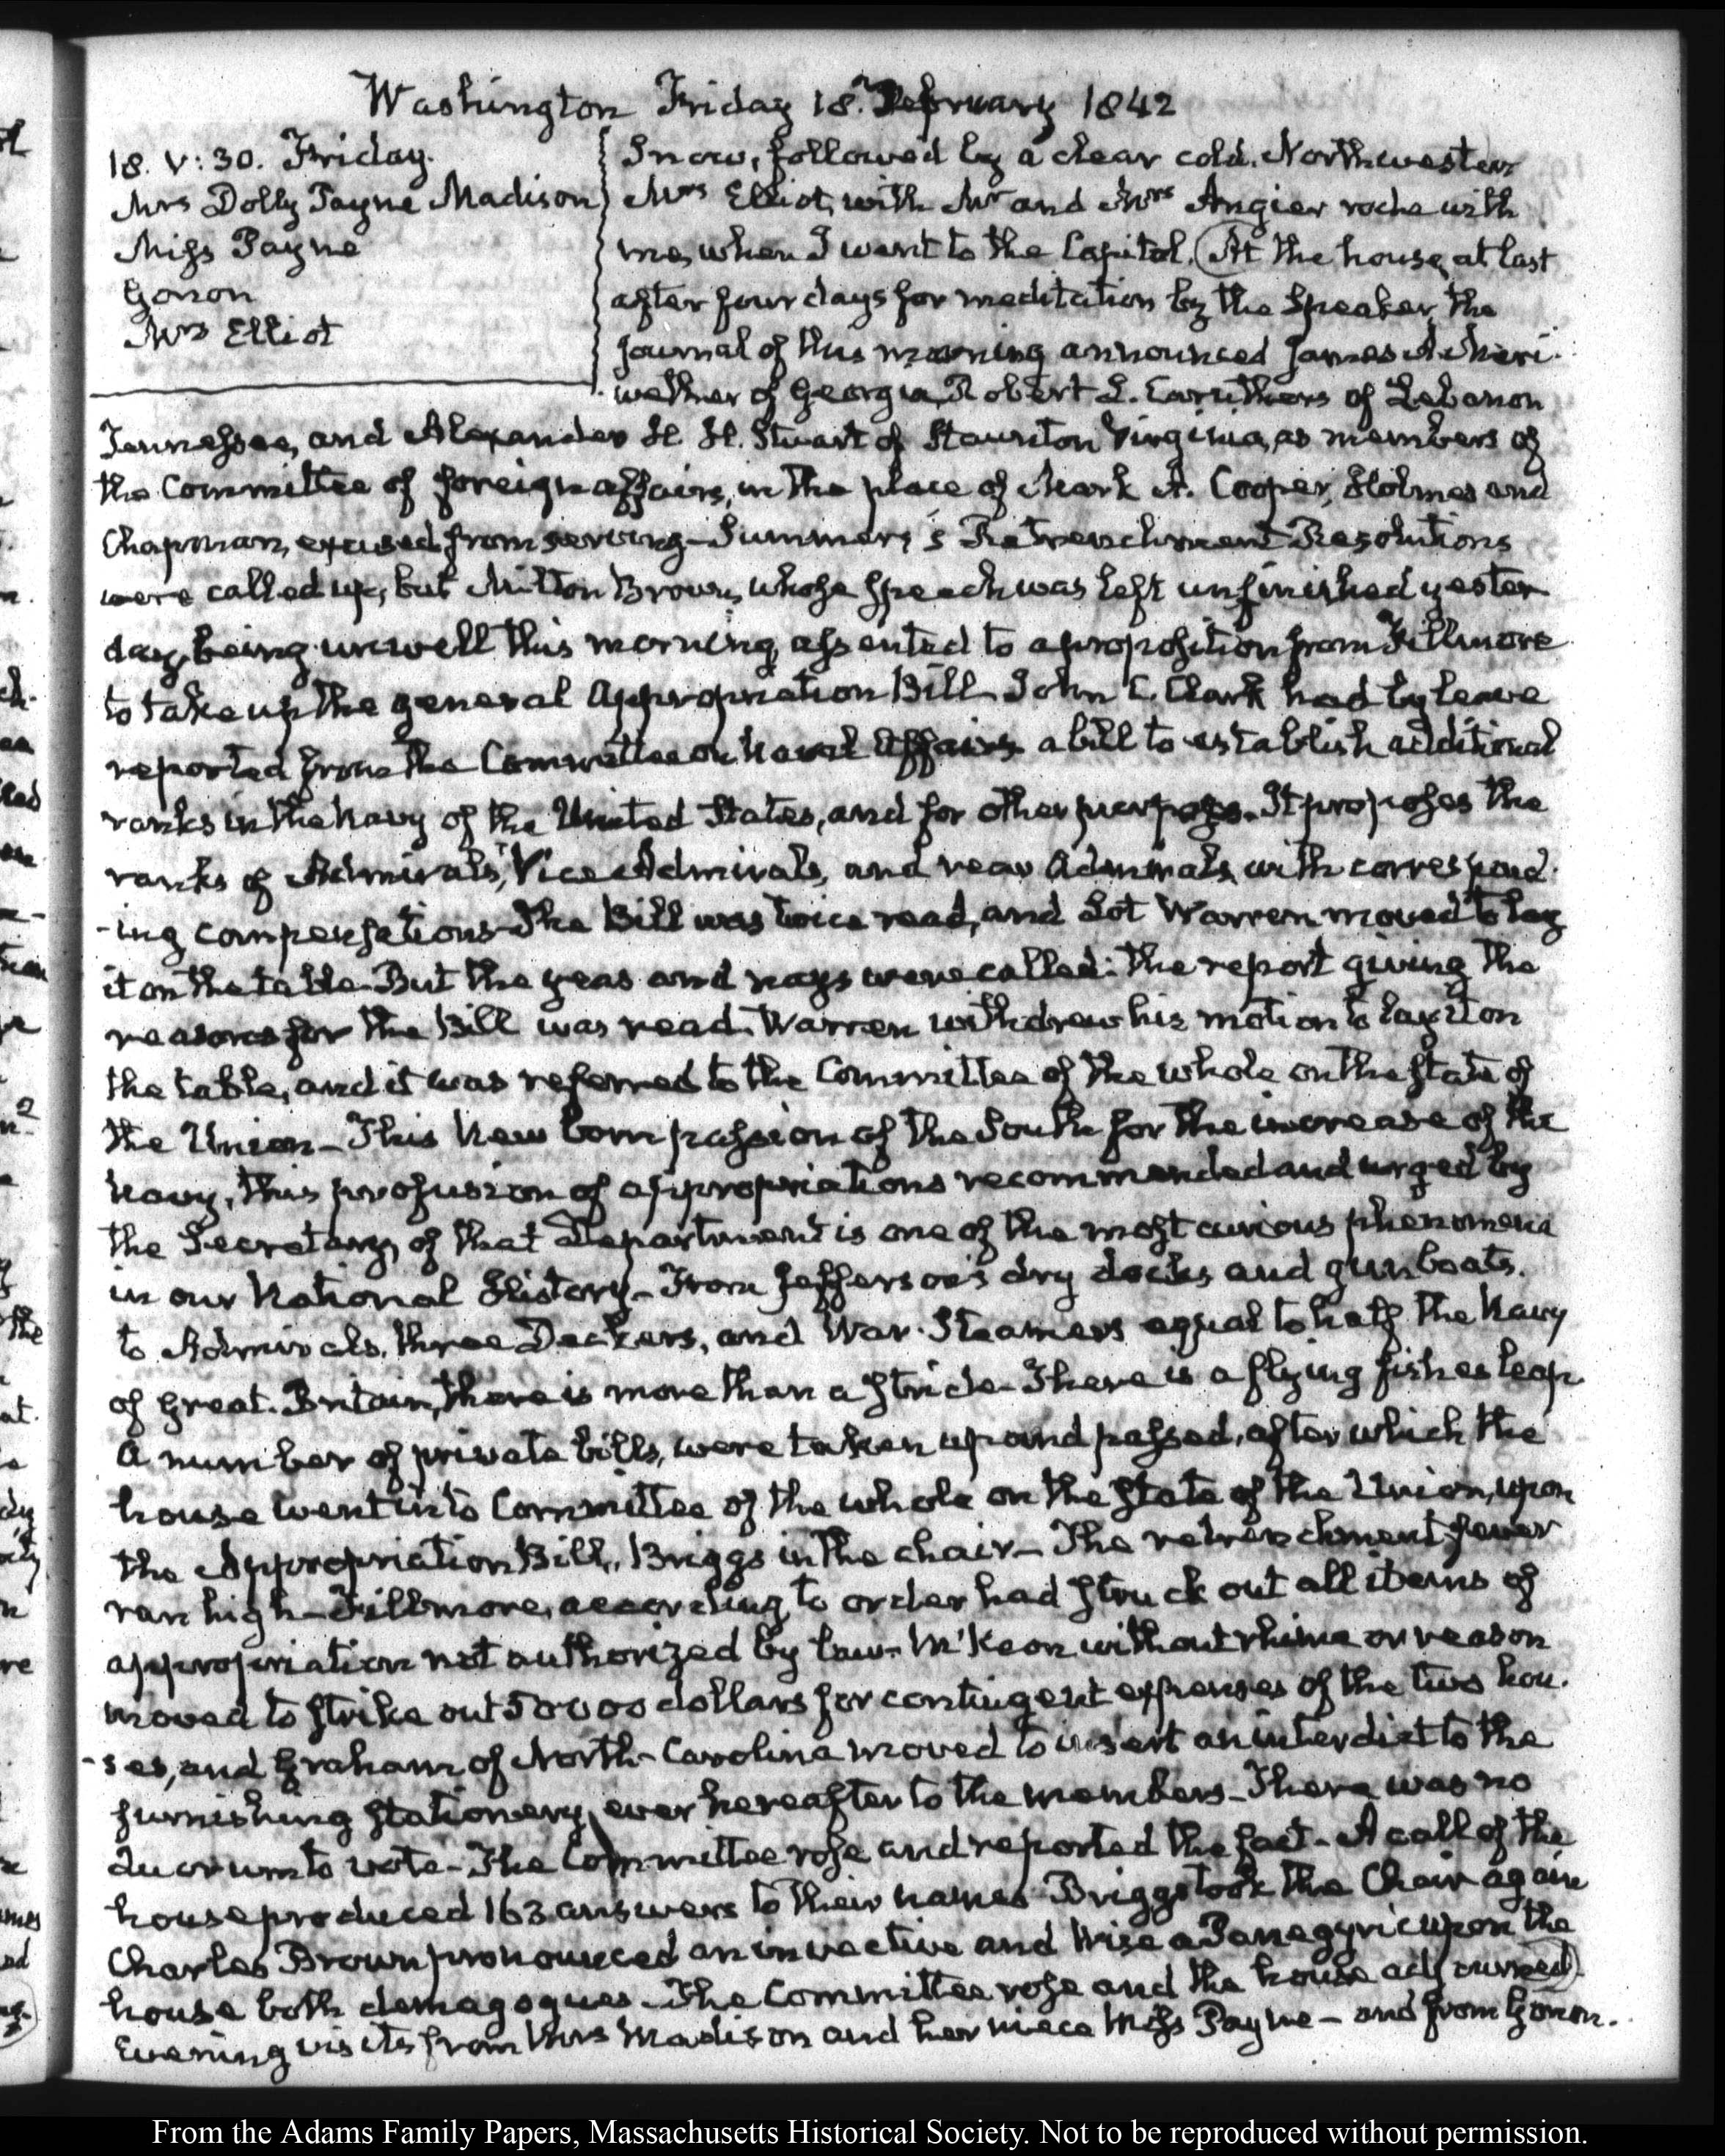 Washington Friday 18. February 1842
18. V: 30. Friday.
Mrs Dolly Payne Madison
Miss Payne
Gonon
Mrs Elliot
Snow, followed by a clear cold. Northwester
Mrs Elliot, with Mr and Mrs Angier rode with
me, when I went to the Capitol. At the house, at last
after four days for meditation by the Speaker, the
journal of this morning announced James A Meri-
wether of Georgia, Robert L. Caruthers of Lebanon
Tennessee, and Alexander H. H. Stuart of Staunton Virginia, as members of
the Committee of foreign affairs, in the place of Mark A. Cooper, Holmes and
Chapman, excused from serving – Summers's Retrenchment Resolutions
were called up, but Milton Brown, whose speech was left unfinished yester
day, being unwell this morning, assented to a proposition from Fillmore
to take up the general Appropriation Bill – John C. Clark had by leave
reported from the Committee on Naval Affairs a bill to establish additional
ranks in the Navy of the United States, and for other purposes. It proposes the
ranks of Admirals, Vice Admirals, and rear Admirals, with correspond-
-ing compensations – The Bill was twice read, and Lot Warren moved to lay
it on the table – But the yeas and nays were called: the report giving the
reasons for the Bill was read. Warren withdrew his motion to lay it on
the table, and it was referred to the Committee of the whole on the state of
the Union – This new born passion of the South for the increase of the
Navy, this profusion of appropriations recommended and urged by
the Secretary of that Department is one of the most curious phenomena
in our National History – From Jefferson's dry docks and gunboats.
to Admirals, three Deckers, and War-Steamers equal to half the Navy
of Great-Britain, there is more than a stride – There is a flying fishes leap.
A number of private bills, were taken up and passed, after which the
house went into Committee of the whole on the state of the Union, upon
the Appropriation Bill, Briggs in the chair – The retrenchment fever
ran high – Fillmore, according to order had struck out all items of
appropriation not authorized by law – M'Keon without rhime or reason
moved to strike out 50000 dollars for contingent expenses of the two hou-
-ses, and Graham of North-Carolina moved to insert an interdict to the
furnishing stationery, ever hereafter to the members – There was no
Quorum to vote – The Committee rose and reported the fact – A call of the
house produced 163 answers to their names – Briggs took the Chair again
Charles Brown pronounced an invective and Wise a Panegyric upon the
house both demagogues – The Committee rose and the house adjourned
Evening visits from Mrs Madison and her niece Miss Payne – and from Gonon.
From the Adams Family Papers, Massachusetts Historical Society. Not to be reproduced without permission.